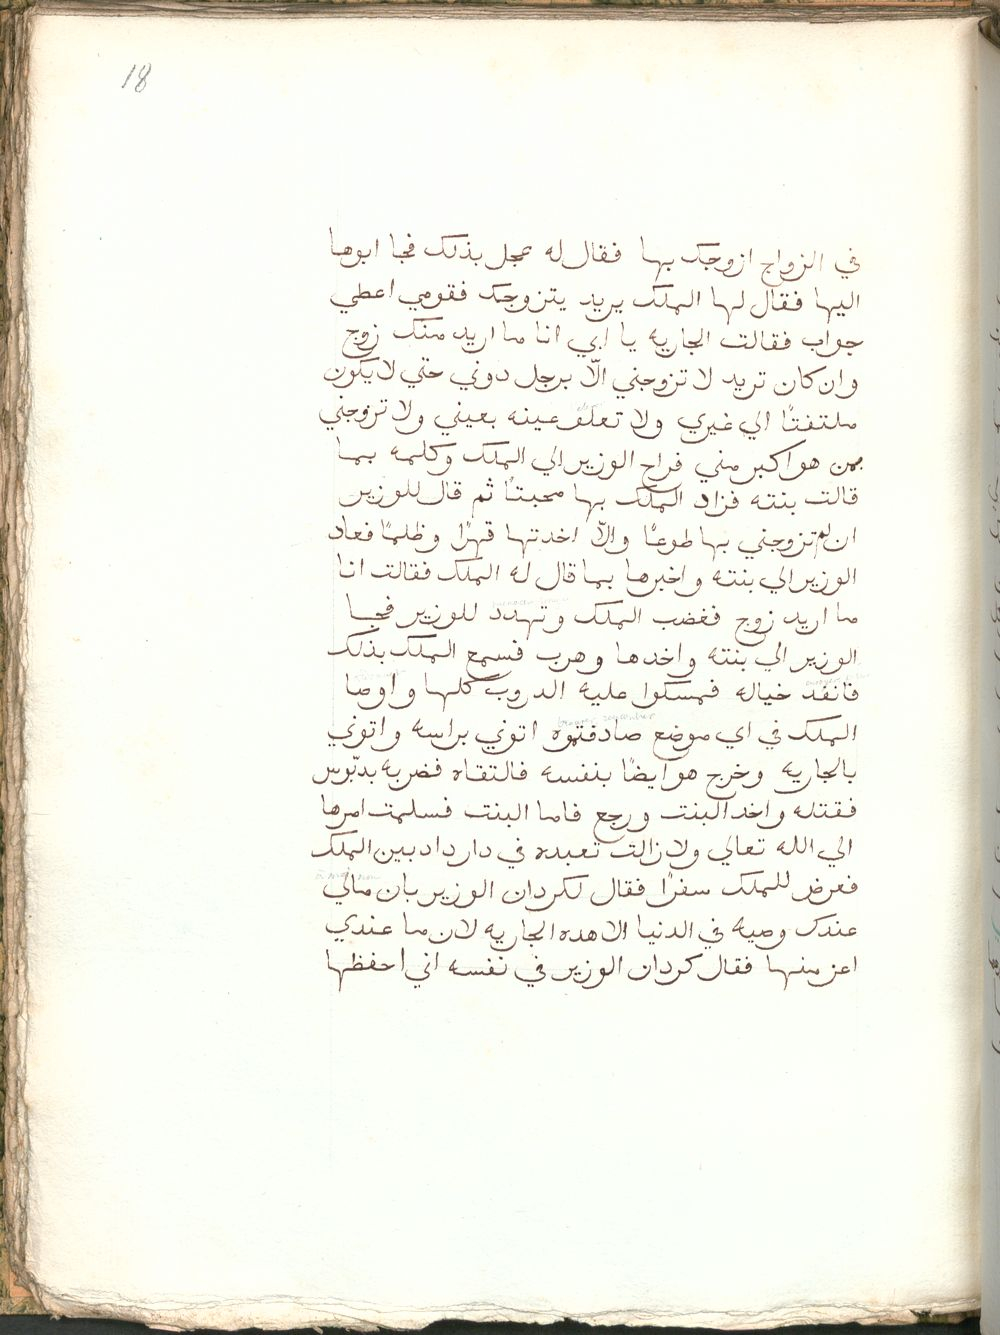 18
في الزواج ازوجك بها فقال له عجل بذلك فجا ابوها
اليها فقال لها الملك يريد يتزوجك فقومي اعطي
جواب فقالت الجاريه يا ابي انا ما اريد منك زوج
وان كان تريد لا تزوجني الّا برجل دوني حتي لا يكون
ملتفتًا الي غيري ولا تعلف عينه بعيني ولا تزوجني
بمن هو اكبر مني فراح الوزير الي الملك وكلمه بما
قالت بنته فزاد الملك بها محبتًا ثم قال للوزير
ان لم تزوجني بها طوعًا والّا اخدتها قهرًا وظلمًا فعاد
الوزير الي بنته واخبرها بما قال له الملك فقالت انا
ما اريد زوج فغضب الملك وتهدد للوزير فجا
الوزير الي بنته واخدها وهرب فسمع الملك بذلك
فانفد خياله فمسكوا عليه الدروب كلها واوصا
الملك في اي موضع صادفتموه اتوني براسه واتوني
بالجاريه وخرج هو ايضًا بنفسه فالتقاه فضربه بدبّوس
فقتله واخد البنت ورجع فاما البنت فسلمت امرها
الي الله تعالي ولا زالت تعبده في دار دادبين الملك
فعرض للملك سفرًا فقال لكردان الوزير بان مالي
عندك وصيه في الدنيا الا هده الجاريه لان ما عندي
اعز منها فقال كردان الوزير في نفسه اني احفظها